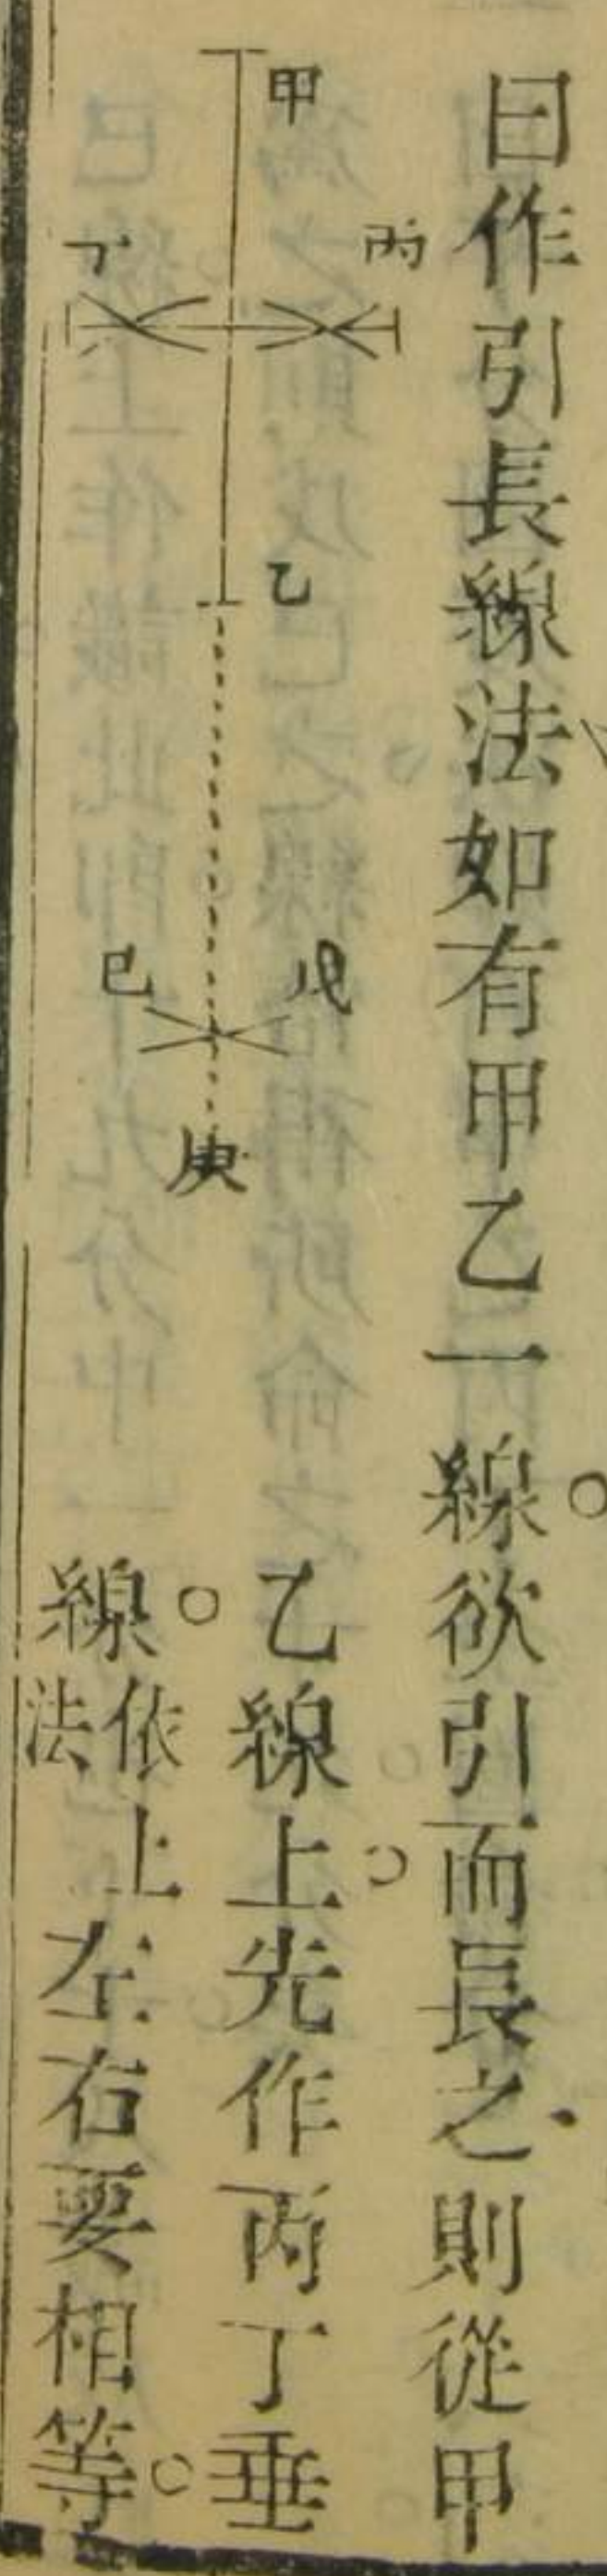 曰作引長線法如有甲乙一線。欲引而長之則從甲
乙線上。先作丙丁垂
線。依上法左右要相等。
甲
丙
丁
乙
戊
已
庚